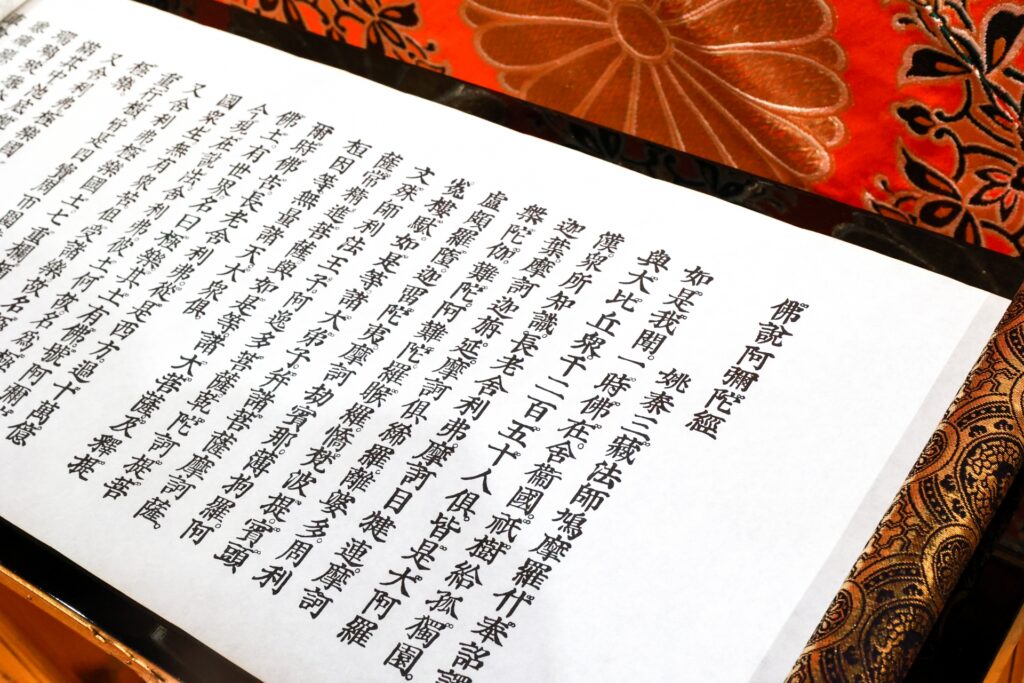 佛說阿彌陀經
姚秦三藏法師鳩摩羅什奉詔譯
如是我聞。一時佛。在舍衞國。祇樹給孤獨園。
與大比丘衆。千二百五十人俱。皆是大阿羅
漢。衆所知識。長老舍利弗。摩訶目犍連。摩訶
迦葉。摩訶迦旃延。摩訶俱絺羅。離婆多。周利
槃陀伽。難陀。阿難陀。羅睺羅。憍梵波提。賓頭
盧頗羅墮。迦留陀夷。摩訶劫賓那。薄拘羅。阿
㝹樓駄。如是等。諸大弟子。幷諸菩薩摩訶薩。
文殊師利法王子。阿逸多菩薩。乾陀訶提菩
薩。常精進菩薩。與如是等。諸大菩薩。及釋提
桓因等。無量諸天大衆俱。
爾時佛告。長老舍利弗。從是西方。過十萬億
佛土。有世界。名曰極樂。其土有佛。號阿彌
今現在說法。舍利弗。彼土何故。名爲極
國衆生。無有衆苦。但受諸樂。故名極
又舍利弗。極樂國土。七重欄楯